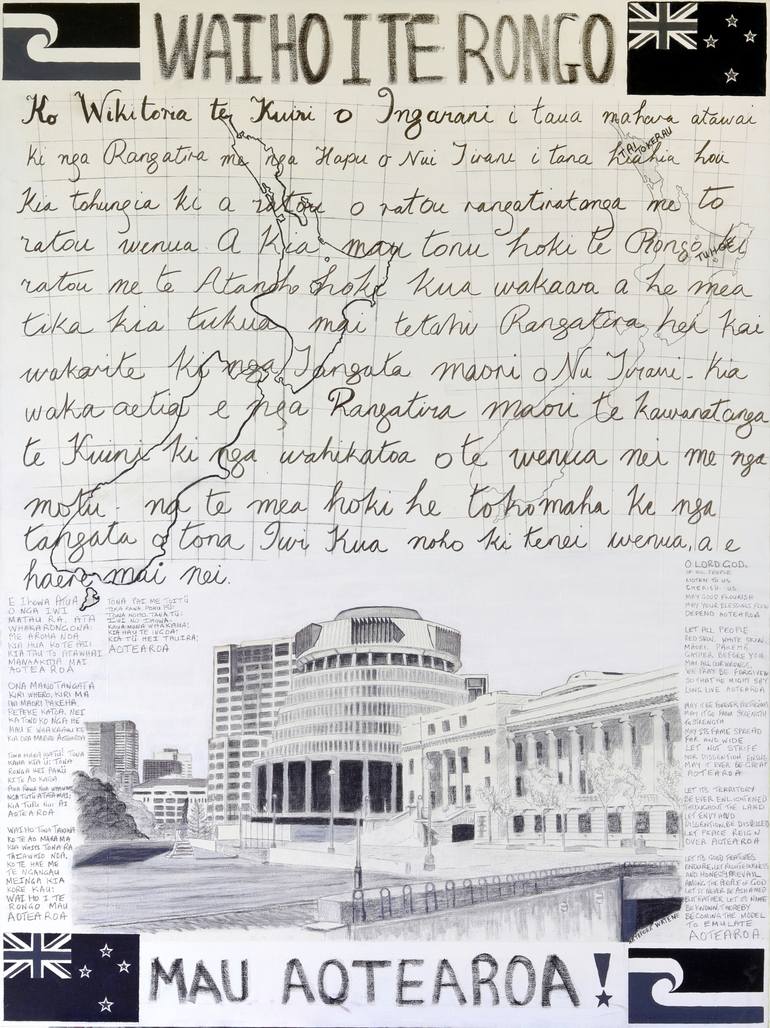 WAIHO I TE RONGO
Ko Wikitoria te Kuini o Ingarani i tana mahara atawai
ki nga Rangatira me nga Hapu o Nui Tirani i tana hiahia hoi
Kia tohungia ki a ratou o ratou rangatiratonga me to
ratou wenua A Kia mau tonu hoki te Rongo ki
ratou me te Atanoho hoki kua wakaara a he mea
tika kia tukua mai tetahi Rangatira hei kai
wakarite ki nga Tangata maori o Nu Tirani - kia
waka aetia e nga Rangatira maori te kawanatanga
te Kuini ki nga wahikatoa o te wenua nei me nga
motu - na te mea hoki he tokomaha ke nga
tangata o tona Iwi Kua noho ki tenei wenua, a e
haere mai nei.
TAI TOKERAU
TUHOE
E IHOWA ATUA
O NGA IWI
MATAU RA. ATA
WHAKARONGONA.
ME AROHA NOA
KIA HUA KO TE PAI
KIA TAU TO ATAWHAI
MANAAKITIA MAI
AOTEAROA
ONA MANO TANGATA
KIRI WHERO, KIRI MA
IWI MAORI PAKEHA
REPEKE KATOA. NEI
KA TONO KO NGA HE
MAU E WHAKAAHU KE
KIA ORA MARIRE AOTEAROA
TONA MANA KIA TU! TONA
KAHA KIA U; TONA
RONGO HEI PAKU
KI TE AO KATOA
NGA TUTU ATA MAI;
KIA TUPU NUI AI
AOTEAROA
WAIHO TONA TAKIWA
KO TE AO MARAMA
KIA WHITI TONA RA
TAIAWHIO NOA.
KO TE HAE ME
TE NGANGAU
MEINGA KIA
KORE KAU;
WAIHO I TE
RONGO MAU
AOTEAROA
TONA PAI ME TOITU
TIKA RAWA, PONO PU;
TONA NOHO, TANA TU;
IWI NO IHOWA.
KAUA MONA WHAKAMA;
KIA HAU TE INGOA;
KIA TU HEI TAUIRA;
AOTEAROA
O LORD GOD.
OF ALL PEOPLE
LISTEN TO US
CHERISH US
MAY GOOD FLOURISH
MAY YOUR BLESSINGS FLOW
DEFEND AOTEAROA
LET ALL PEOPLE
RED SKIN, WHITE SKIN,
MAORI, PAKEHA
GATHER BEFORE YOU
MAY ALL OUR WRONGS,
WE PRAY BE FORGIVEN
SO THAT WE MIGHT SAY
LONG LIVE AOTEAROA
MAY IT BE FOREVER PRESTIGIOUS
MAY IT GO FROM STRENGTH
TO STRENGTH
MAY ITS FAME SPREAD
FAR AND WIDE
LET NOT STRIFE
NOR DISSENTION ENSUE
MAY IT EVER BE GREAT
AOTEAROA
LET ITS TERRITORY
BE EVER ENLIGHTENED
THROUGHOUT THE LAND
LET ENVY AND
DISSENTION BE DISPELLED
LET PEACE REIGN
OVER AOTEAROA
LET ITS GOOD FEATURES
ENDURE, LET RIGHTEOUSNESS
AND HONESTY PREVAIL
AMONG THE PEOPLE OF GOD
LET IT NEVER BE ASHAMED
BUT RATHER LET ITS NAME
BE KNOWN, THEREBY
BECOMING THE MODEL
TO EMULATE
AOTEAROA
WATENE
MAU AOTEAROA!